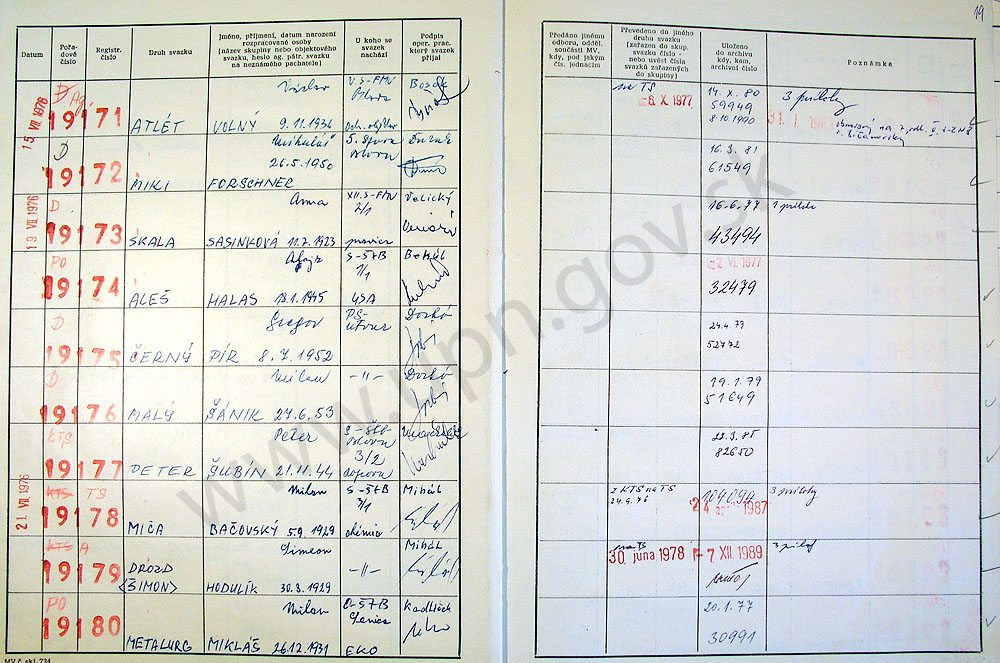 19
Datum
Pořa-
dové
číslo
Registr.
číslo
Druh svazku
Jméno, příjmení, datum narození
rozpracované osoby
(název skupiny nebo objektového
svazku, heslo ag. pátr. svazku
na neznámého pachatele)
U koho se
svazek
nachází
Podpis
oper. prac.
který svazek
přijal
Předáno jinému
odboru, odděl.
součásti MV,
kdy, pod jakým
čís. jednacím
Převedeno do jiného
druhu svazku
(zařazen do skup.
svazku číslo -
nebo uvést čísla
svazků zařazených
do skupiny)
Uloženo
do archivu
kdy, kam,
archivní číslo
Poznámka
15. VII 1976
19171
ATLÉT
Václav
VOLNÝ 9.11.1936
na TS
-6. X. 1977
14. X. 80
59949
8.10.1990
3 prílohy
D
19172
MIKI
Mikuláš
26.5.1950
FORSCHNER
16.3.81
61549
19 VII 1976
D
19173
SKALA
Anna
SASINKOVÁ 11.7.1923
XII. S-FMV
2/1
Velický
16.6.77
43494
1 príloha
PO
19174
ALEŠ
Alojz
MALAS 18.1.1945
S-ŠTB
7/1
USA
-2. VI. 1977
32479
D
19175
ČERNÝ
Gregor
PÍR 8.7.1952
24.4.79
52772
D
19176
MALÝ
Milan
ŠÁNIK 27.6.53
-11-
19.1.79
51649
21. VII 1976
KTS
19177
PETER
Peter
ŠUBÍN 21.11.44
3/2
22.3.85
82650
KTS TS
19178
MIČA
Milan
BAČOVSKÝ 5.9.1929
S-ŠTB
7/1
chémia
Mihál
z KTS na TS
24.9.76
104094
24 apr 1987
3 prílohy
KTS A
19179
DROZD
(ŠIMON)
Simeon
HODULÍK 30.3.1929
-11-
Mihál
na TS
30. júna 1978
-7 XII. 1989
PO
19180
METALURG
Milan
MIKLÁŠ 26.12.1931
O-ŠTB
Senica
EKO
20.1.77
30991
www.upn.gov.sk
MV č. skl. 734